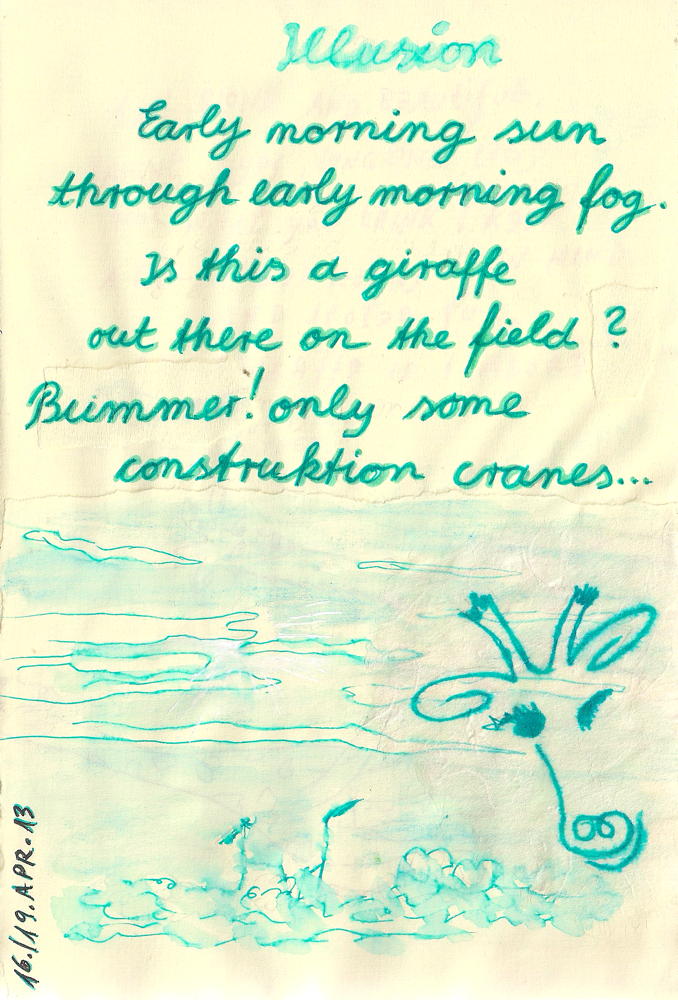 Illusion
Early morning sun
through early morning fog.
Is this a giraffe
out there on the field ?
Bummer! only some
construktion cranes...
16./19.APR.13